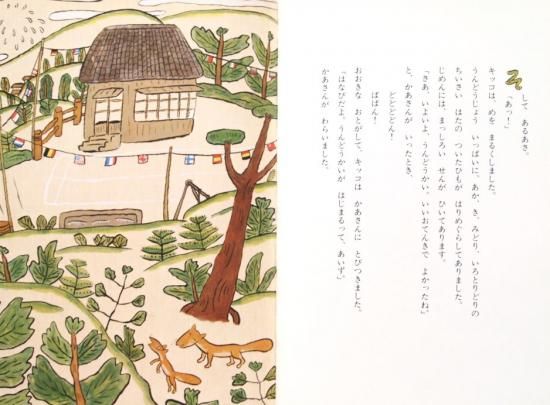 そして あるあさ。
「あっ!」
キッコは、めを まるくしました。
うんどうじょう いっぱいに、あか、き、みどり、いろとりどりの
ちいさい はたの ついたひもが はりめぐらしてありました。
じめんには、まっしろい せんが ひいてあります。
「さあ、いよいよ、うんどうかい。いいおてんきで よかったね」
と、かあさんが いったとき、
どどどどん!
ばばん!
おおきな おとがして、キッコは かあさんに とびつきました。
「はなびだよ。うんどうかいが はじまるって、あいず」
かあさんが わらいました。